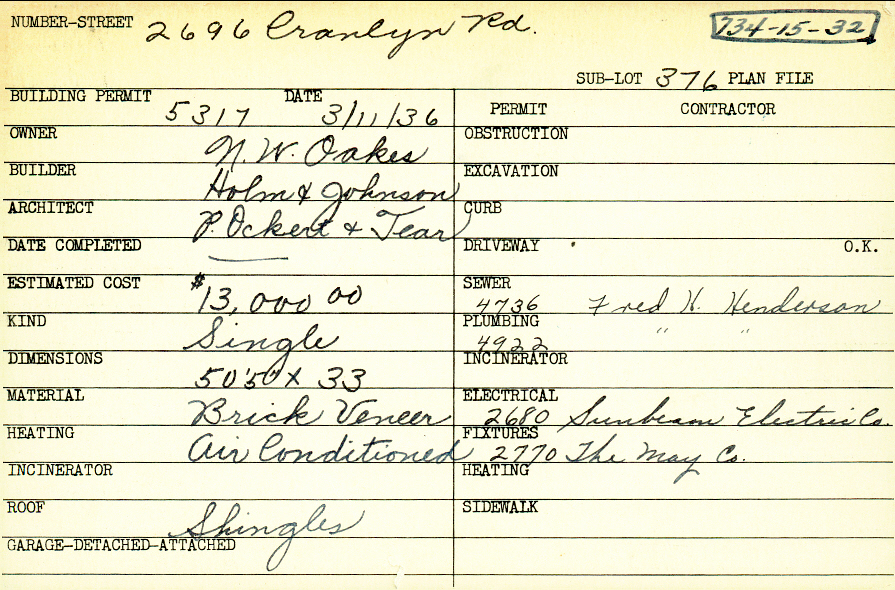 NUMBER-STREET 2696 Cranlyn Rd. 734-15-32
SUB-LOT 376 PLAN FILE
BUILDING PERMIT 5317 DATE 3/11/36
PERMIT CONTRACTOR
OWNER N. W. Oakes
OBSTRUCTION
BUILDER Holm & Johnson
EXCAVATION
ARCHITECT P. Ockert & Tear
CURB
DATE COMPLETED ——
DRIVEWAY O.K.
ESTIMATED COST $13,000 00
SEWER 4736 Fred H. Henderson
KIND Single
PLUMBING 4922 " "
DIMENSIONS 50'5" x 33
INCINERATOR
MATERIAL Brick Veneer
ELECTRICAL 2680 Sunbeam Electric Co.
HEATING Air Conditioned
FIXTURES 2770 The May Co.
INCINERATOR
HEATING
ROOF Shingles
SIDEWALK
GARAGE-DETACHED-ATTACHED